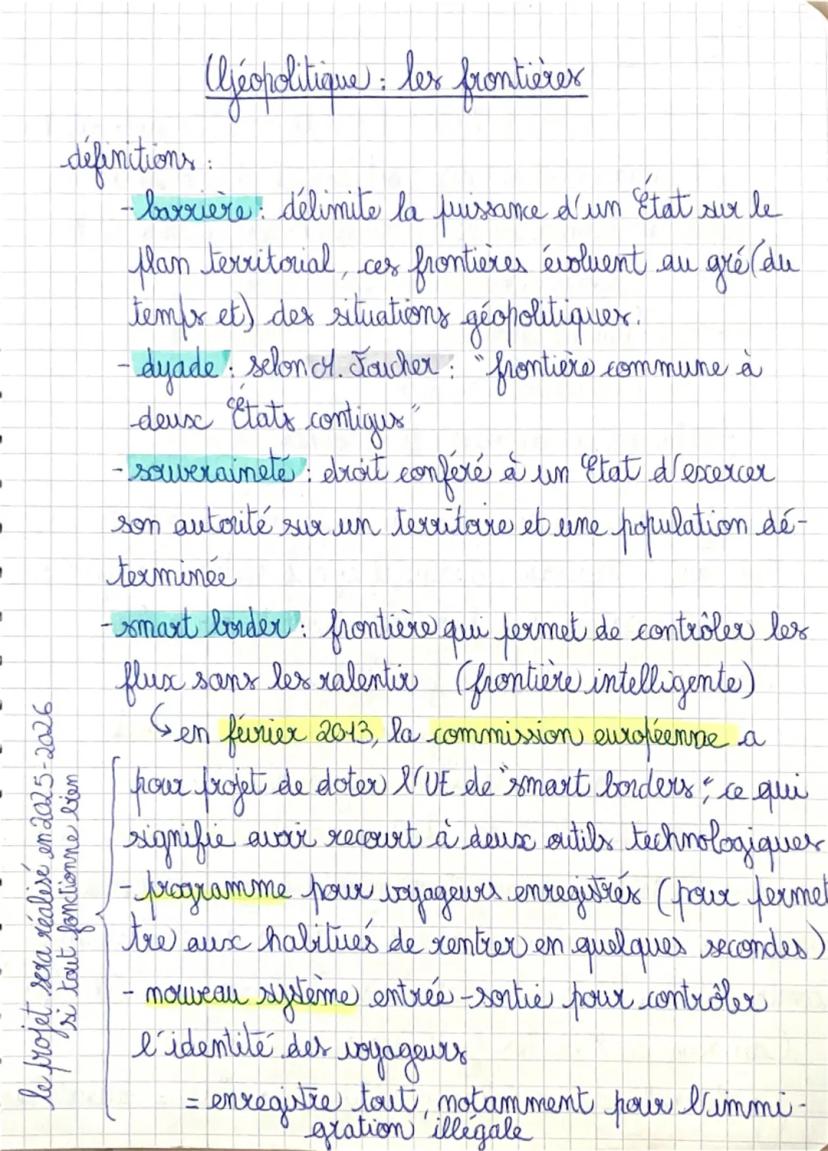 Géopolitique : les frontières
définitions :
- barrière : délimite la puissance d'un État sur le
plan territorial, ces frontières évoluent au gré (du
temps et) des situations géopolitiques.
- dyade : selon M. Foucher : "frontière commune à
deux États contigus"
- souveraineté : droit conféré à un Etat d'exercer
son autorité sur un territoire et une population dé-
terminée
- smart border : frontière qui permet de contrôler les
flux sans les ralentir (frontière intelligente)
↳ en février 2013, la commission européenne a
pour projet de doter l'UE de "smart borders", ce qui
signifie avoir recourt à deux outils technologiques
- programme pour voyageurs enregistrés (pour permet
tre aux habitués de rentrer en quelques secondes)
- nouveau système entrée-sortie pour contrôler
l'identité des voyageurs
= enregistre tout, notamment pour l'immi-
gration illégale
le projet sera réalisé en 2025-2026
si tout fonctionne bien